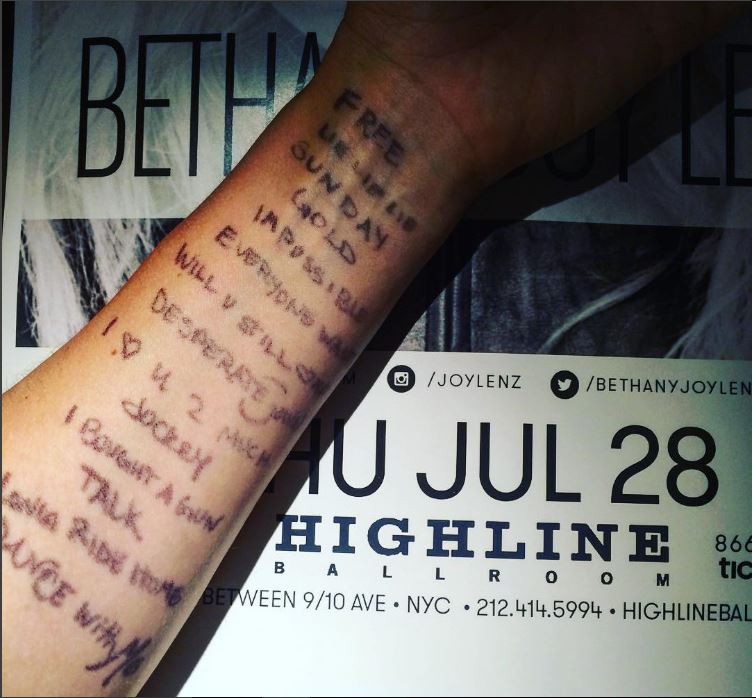 BETHA OY LE
FREE
LIE LIE LIE
SUNDAY
GOLD
IMPOSSIBLE
EVERYONE
WILL U STILL
DESPERATE
I ♡ U 2 MUCH
JOCKEY
I BOUGHT A GUN
TALK
LONG RIDE HOME
DANCE WITH ME
/JOYLENZ /BETHANYJOYLEN
HU JUL 28
HIGHLINE
BALLROOM
866
TIC
BETWEEN 9/10 AVE • NYC • 212.414.5994 • HIGHLINEBAL